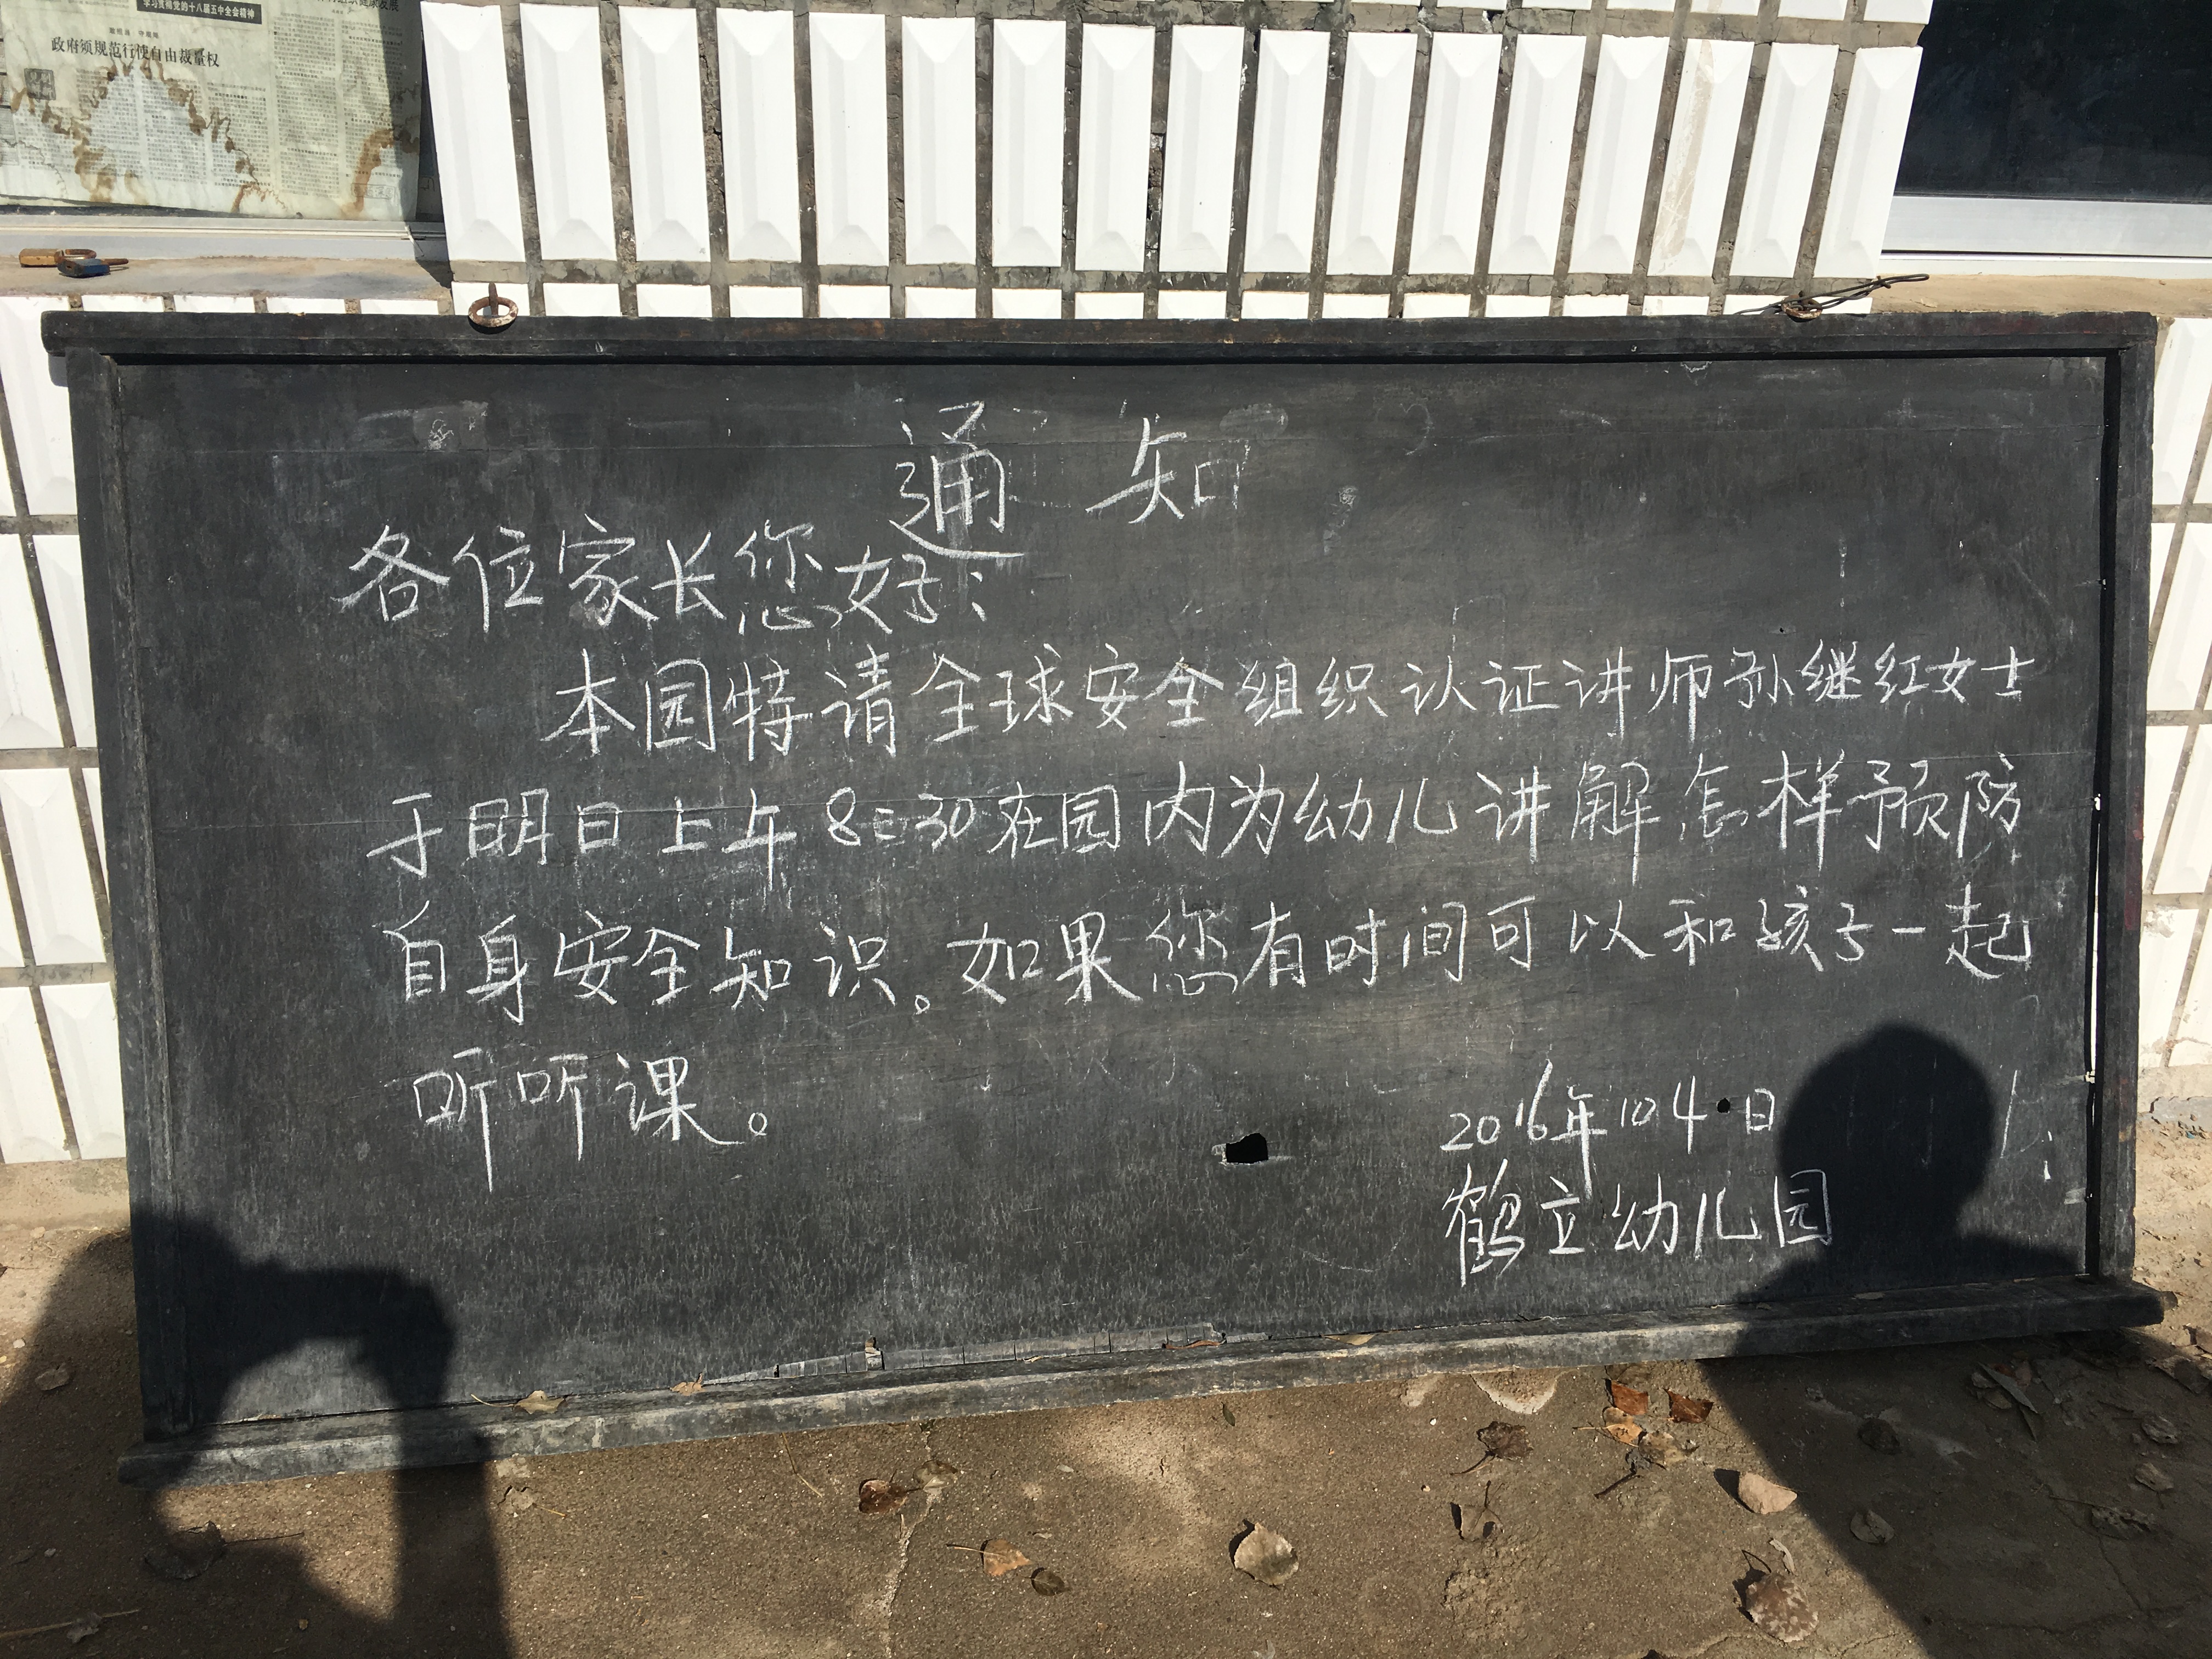 学习贯彻党的十八届五中全会精神
政府须规范行使自由裁量权
通知
各位家长您好:
本园特请全球安全组织认证讲师孙继红女士
于明日上午8:30在园内为幼儿讲解怎样预防
自身安全知识。如果您有时间可以和孩子一起
听听课。
2016年10 4·日
鹤立幼儿园